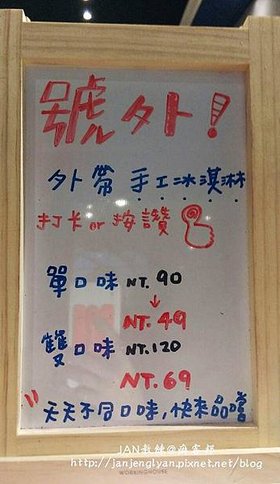 號外!
外帶 手工冰淇淋
打卡 or 按讚
單口味 NT. 90
↓
NT. 49
雙口味 NT. 120
NT. 69
"天天不同口味,快來品嚐
http://janjenglyan.pixnet.net/blog
WORKINGHOUSE